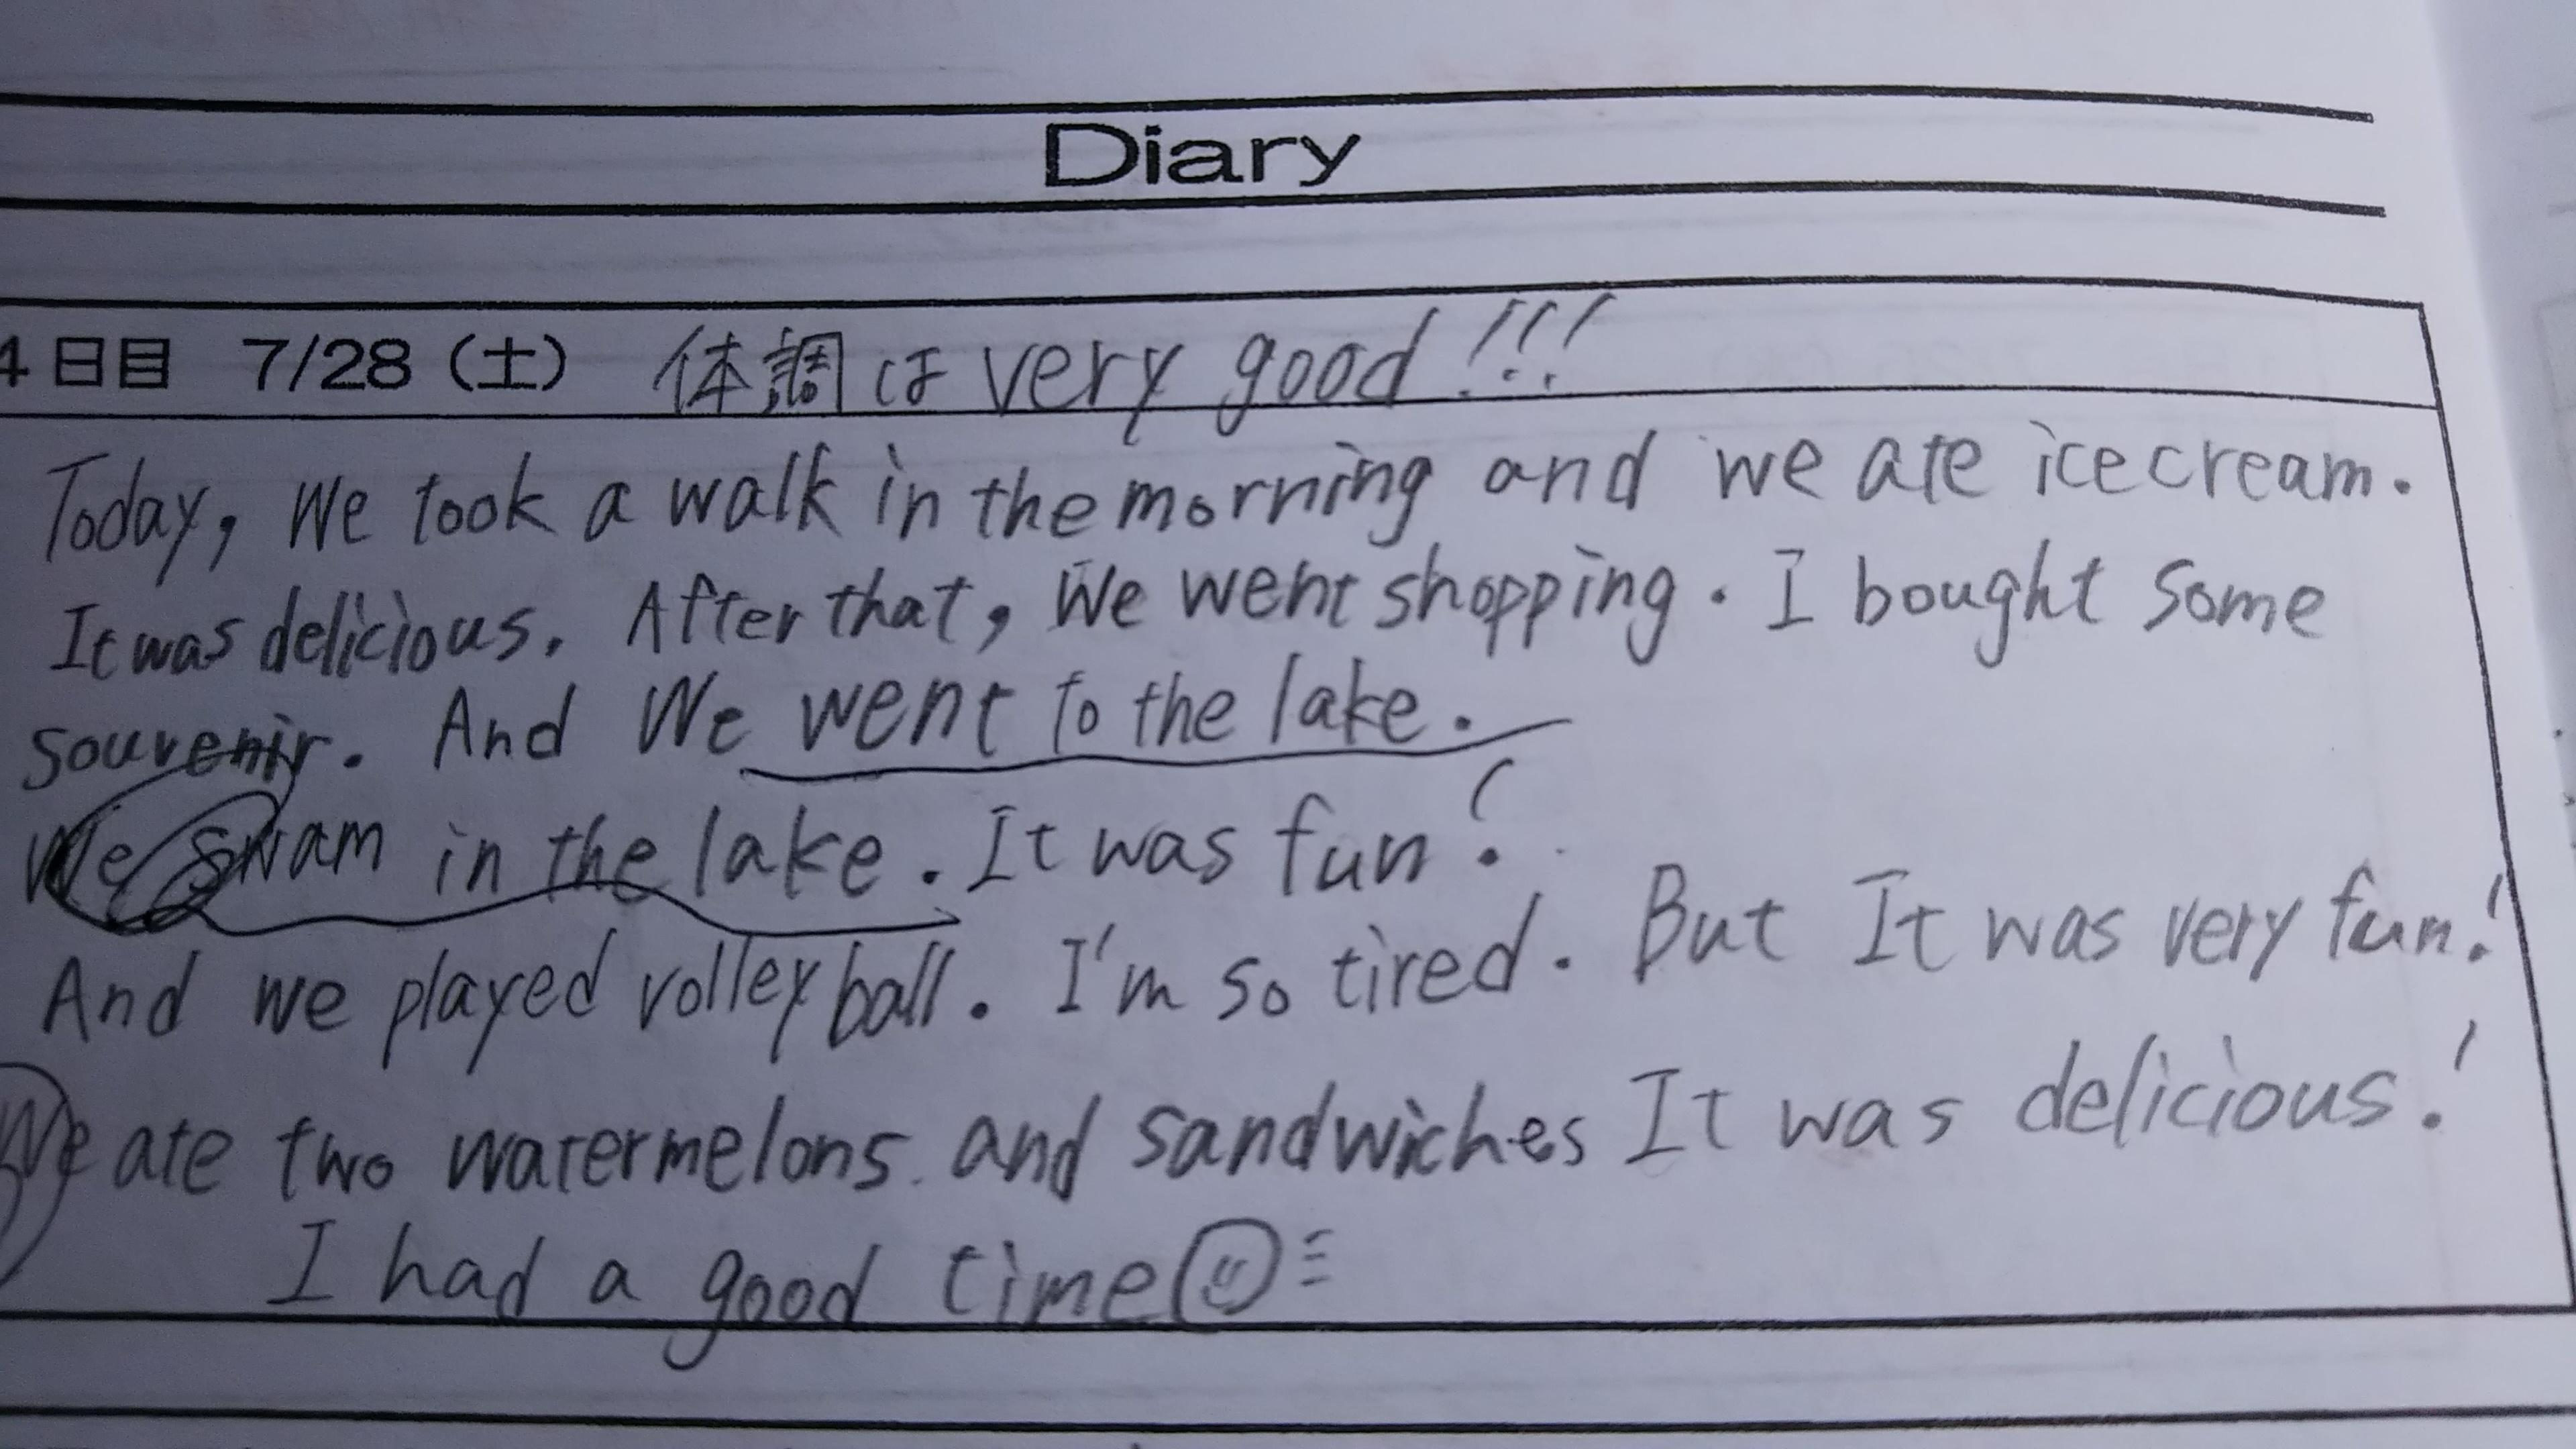 Diary
4日目 7/28（土） 体調は very good!!!
Today, We took a walk in the morning and we ate icecream.
It was delicious. After that, We went shopping. I bought some
souvenir. And We went to the lake.
We swam in the lake. It was fun!
And we played volleyball. I'm so tired. But It was very fun!
We ate two watermelons and sandwiches It was delicious!
I had a good time